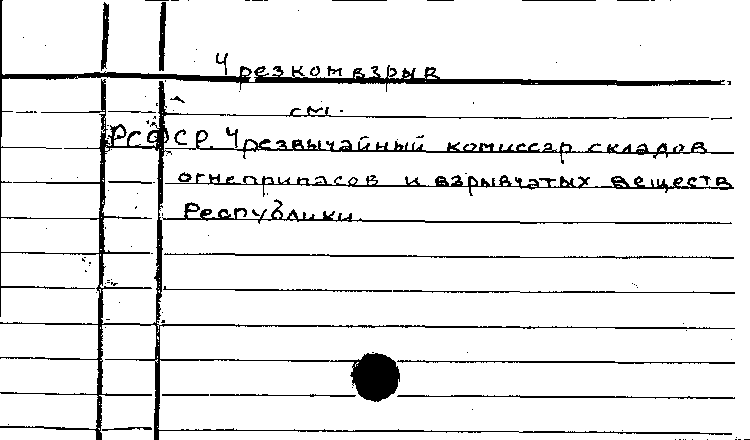 Чрезкомвзрыв
см.
РСФСР. Чрезвычайный комиссар складов
огнеприпасов и взрывчатых веществ
Республики.